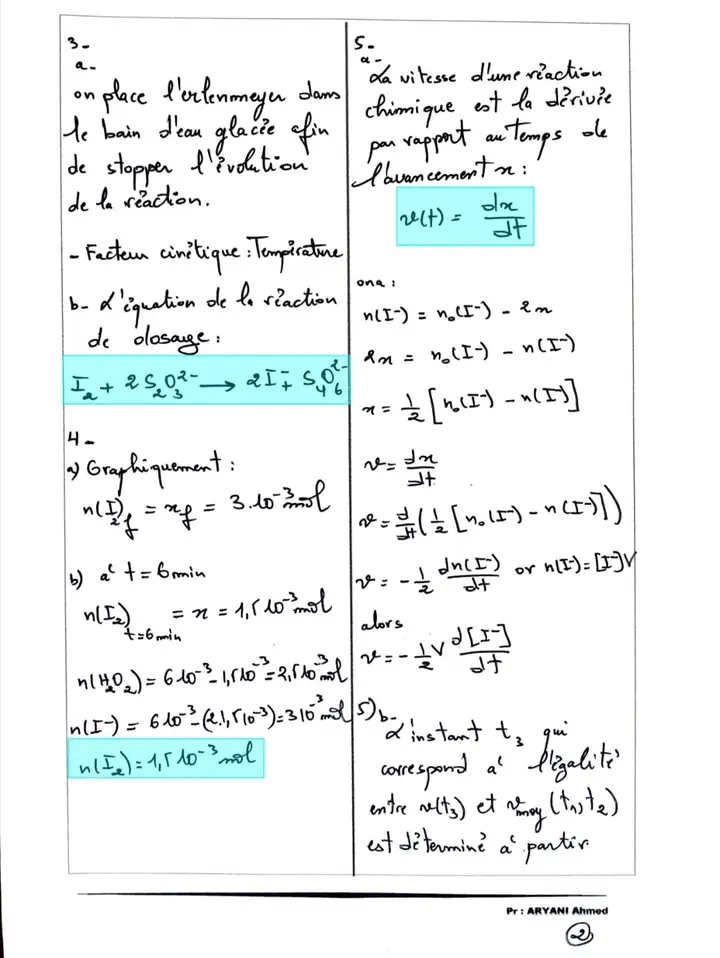 3-
a-
on place l'erlenmeyer dans
le bain d'eau glacée afin
de stopper l'évolution
de la réaction.
- Facteur cinétique : Température
b- L'équation de la réaction
de dosage :
I₂ + 2 S₂O₃²⁻ → 2I⁻ + S₄O₆²⁻
4-
a) Graphiquement :
n(I₂)f = xf = 3.10⁻³ mol
b) a' t = 6 min
n(I₂)t=6min = x = 1,5 10⁻³ mol
n(H₂O₂) = 6 10⁻³ - 1,5 10⁻³ = 2,5 10⁻³ mol
n(I⁻) = 6 10⁻³ - (2.1,5 10⁻³) = 3 10⁻³ mol
n(I₂) = 1,5 10⁻³ mol
5-
a-
La vitesse d'une réaction
chimique est la dérivée
par rapport au temps de
l'avancement x :
v(t) = dx/dt
on a :
n(I⁻) = n₀(I⁻) - 2x
2x = n₀(I⁻) - n(I⁻)
x = 1/2 [n₀(I⁻) - n(I⁻)]
v = dx/dt
v = d/dt (1/2 [n₀(I⁻) - n(I⁻)])
v = - 1/2 dn(I⁻)/dt or n(I⁻) = [I⁻]V
alors
v = - 1/2 V d[I⁻]/dt
5) b-
L'instant t₃ qui
correspond a' l'égalité
entre v(t₃) et vmoy (t₁, t₂)
est déterminé a' partir
Pr : ARYANI Ahmed
2